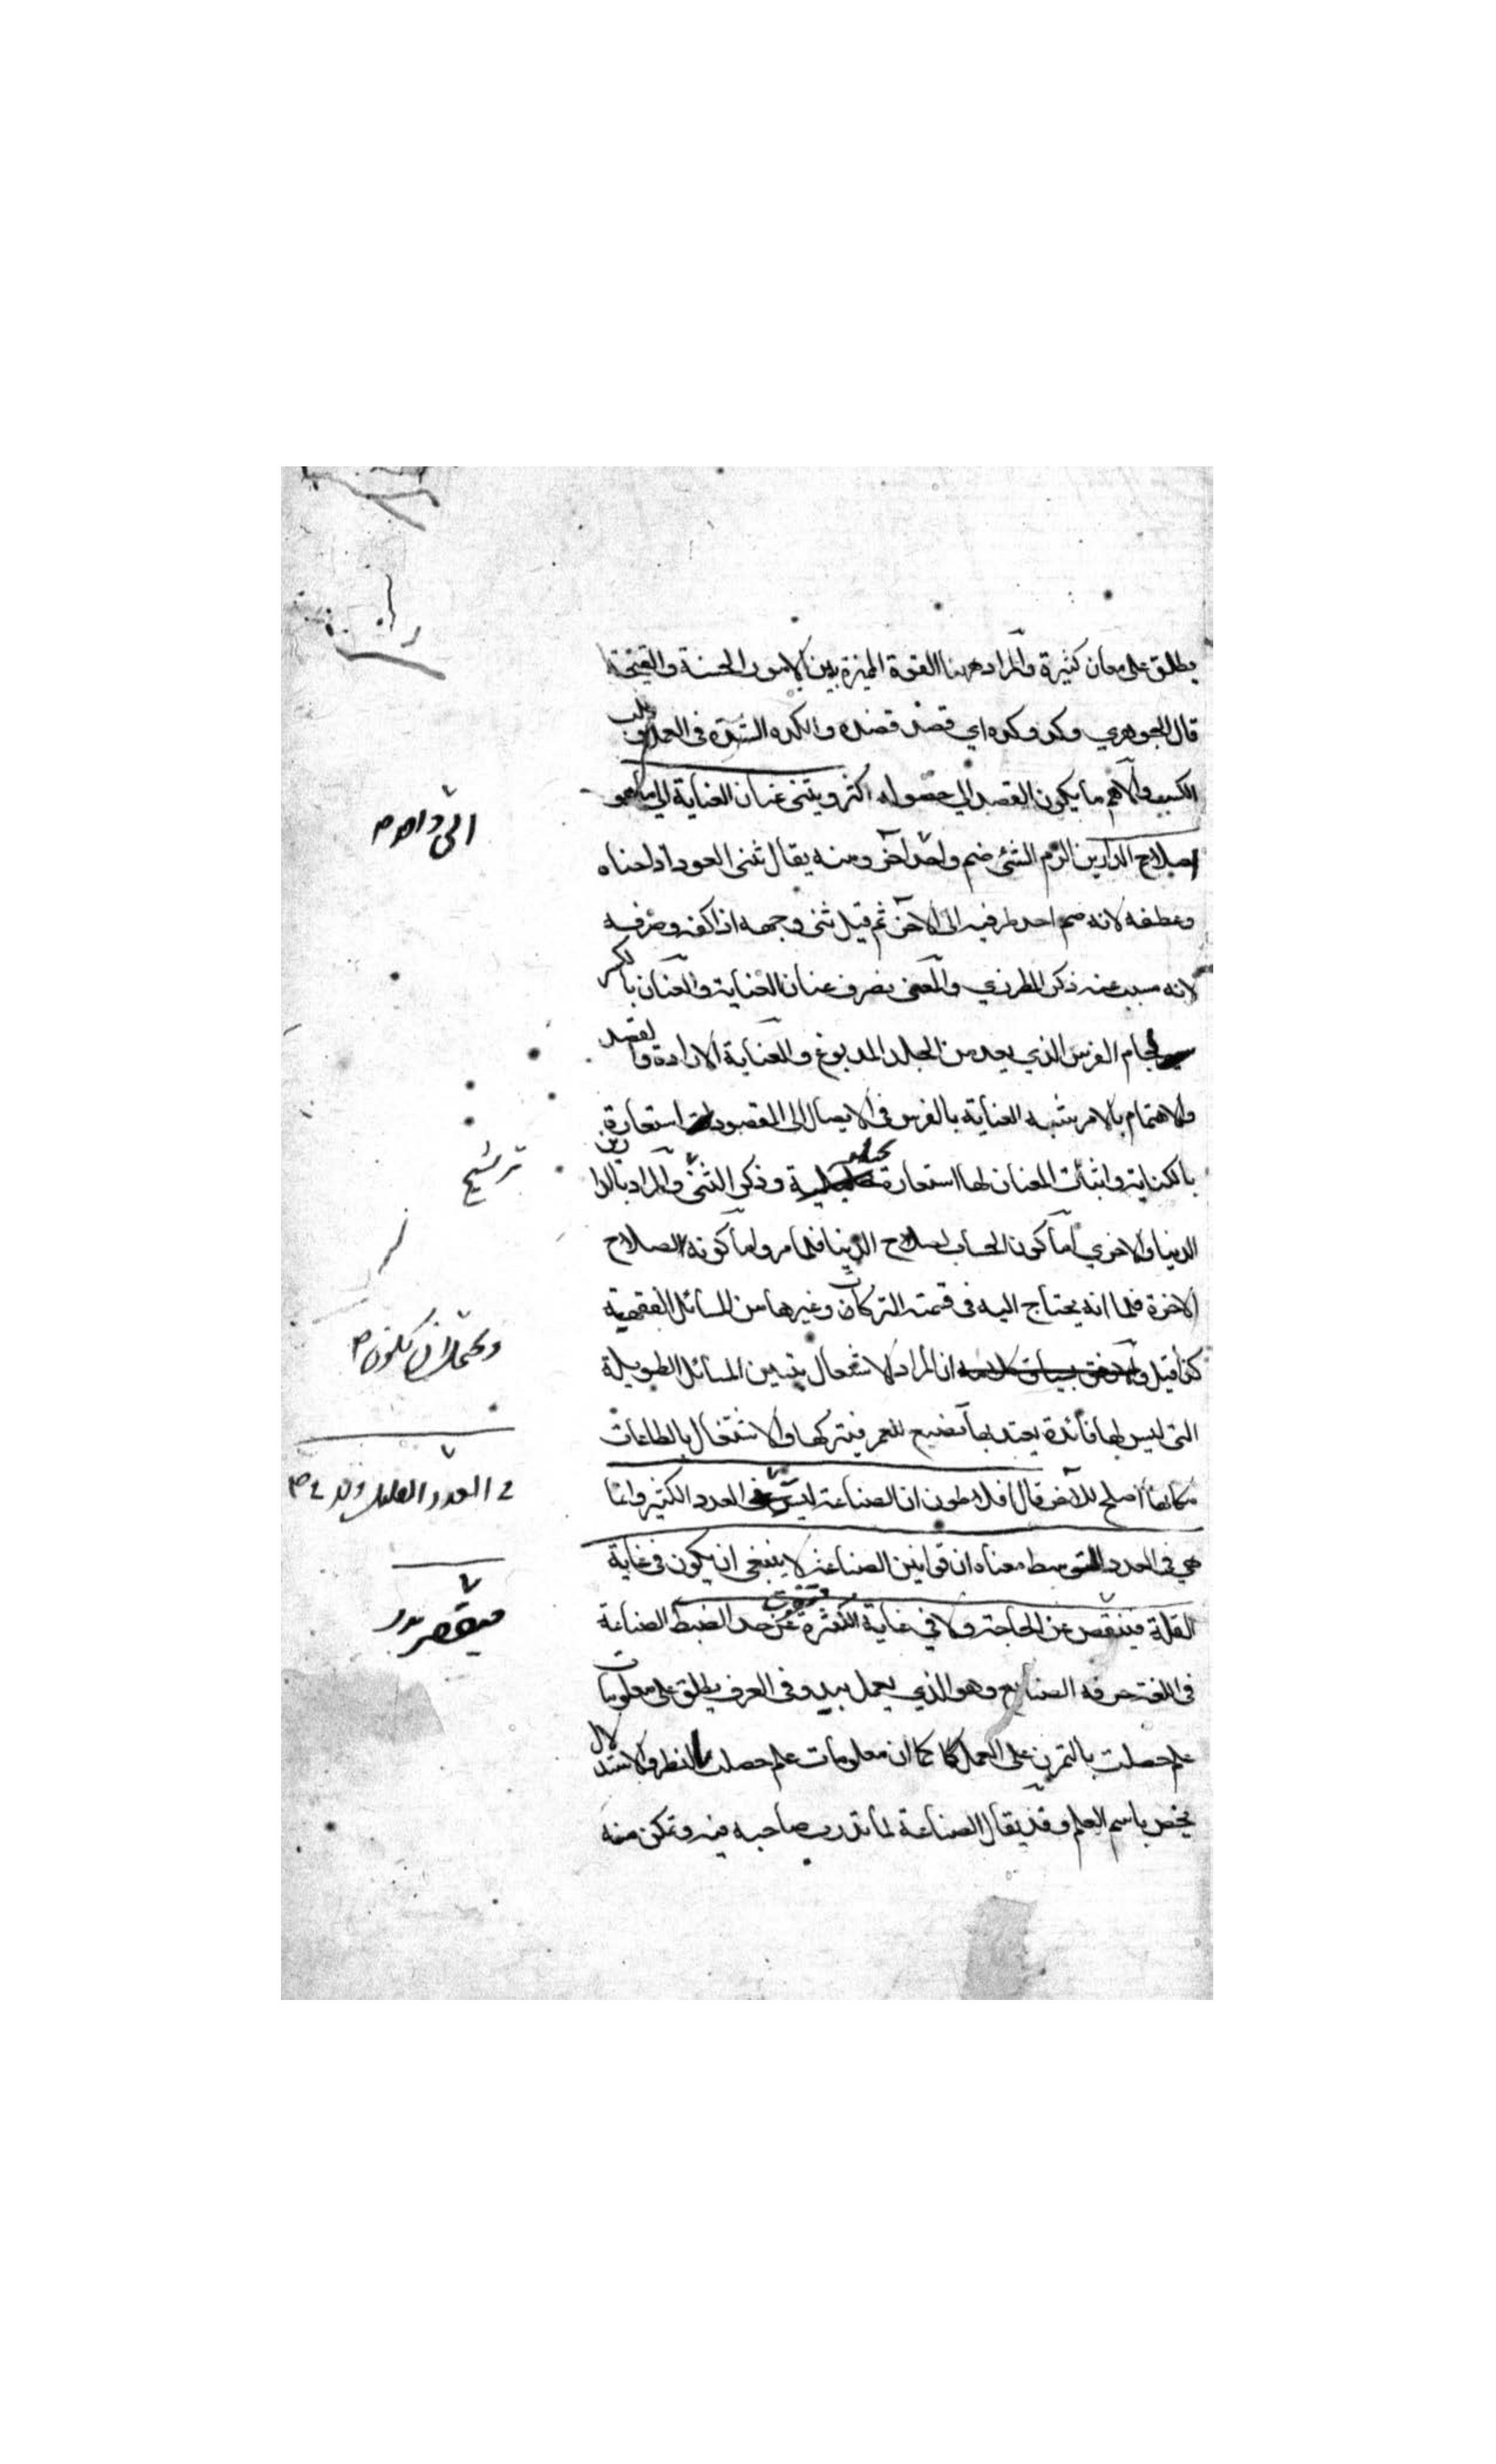 يطلق على معان كثيرة والمراد ههنا القوة المميزة بين الامور الحسنة والقبيحة
قال الجوهري وكد وكده اي قصد قصده والكد الشدة في العمل وطلب
الكسب والاهم ما يكون القصد الي حصوله اكثر ويثنى عنان العناية الي ما هو
اصلاح الدارين الشئ ضم واحد آخر ومنه يقال ثنى العود اذا حناه
وعطفه لانه ضم احد طرفيه الى الاخر ثم قيل ثنى وجهه اذا كفه وصرفه
لانه مسبب عنه ذكره المطرزي والمعنى يصرف عنان العناية والعنان بالكسر
لجام الفرس الذي يعد من الجلد المدبوغ والعناية الارادة والقصد
والاهتمام بالامر شبه العناية بالفرس في الايصال الى المقصود استعارة
بالكناية واثبات العنان لها استعارة تخييلية وذكر الثنى والمراد بالدارين
الدنيا والاخرى اما كون الحساب اصلاح الدنيا فلما مر واما كونه الصلاح
الاخرة فلما انه يحتاج اليه في قسمة التركات وغيرها من المسائل الفقهية
كذا قيل ان المراد الاشتغال بتبيين المسائل الطويلة
التى ليس لها فائدة يعتد بها تضييع للعمر فيتركها والاشتغال بالطاعات
مكانها اصلح للآخر قال افلاطون ان الصناعة ليس في العدد الكثير وانما
هي في العدد المتوسط معناه ان قوانين الصناعة لا ينبغي ان يكون في غاية
القلة فينقص عن الحاجة ولا في غاية الكثرة عن حد الضبط الصناعة
في اللغة حرفة الصانع وهو الذي يعمل بيده وفي العرف يطلق على معلومات
علم حصلت بالتمرن على العمل كما ان معلومات علم حصلت بالنظر والاستدلال
يخص باسم العلم وقد يقال الصناعة لما تدرب صاحبه فيه وتمكن منه
الى واحد م
ترشيح
ويحتمل ان يكون م
في العدد القليل ولا في م